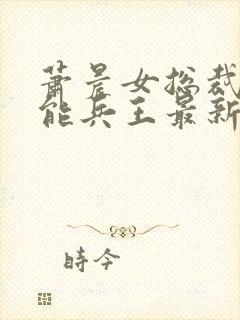 萧晨女总裁
能兵王最新
時今